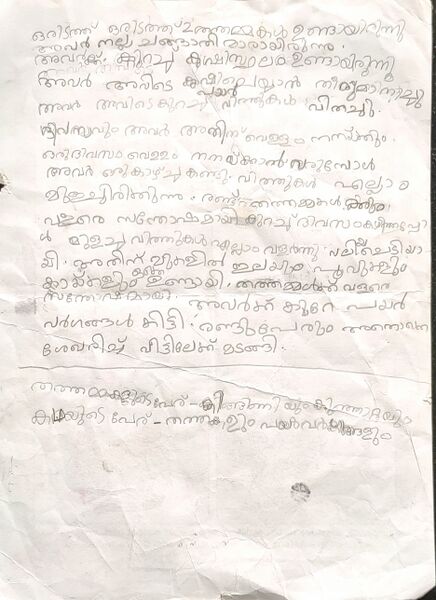 ഒരിടത്ത് ഒരിടത്ത് 2 തത്തമ്മകൾ ഉണ്ടായിരുന്നു
അവർ നല്ല ചങ്ങാതിമാരായിരുന്നു.
അവർക്ക് കുറച്ച് കൃഷിസ്ഥലം ഉണ്ടായിരുന്നു
അവർ അവിടെ കൃഷിചെയ്യാൻ തീരുമാനിച്ചു
പയർ
അവർ അവിടെ കുറച്ച് വിത്തുകൾ വിതച്ചു.
ദിവസവും അവർ അതിന് വെള്ളം നനയ്ക്കും.
ഒരു ദിവസം വെള്ളം നനയ്ക്കാൻ വരുമ്പോൾ
അവർ ഒരു കാഴ്ച്ച കണ്ടു. വിത്തുകൾ എല്ലാം
മുളച്ചിരിക്കുന്നു. രണ്ട് തത്തമ്മകൾക്കും
വളരെ സന്തോഷമായി കുറച്ച് ദിവസം കഴിഞ്ഞപ്പോ
ൾ മുളച്ച വിത്തുകൾ എല്ലാം വളർന്നു. വലിയ ചെടിയാ
യി. അതിന് മുകളിൽ ഇലയും, പൂവുകളും
കായ്കളും ഉണ്ടായി. തത്തമ്മകൾക്ക് വളരെ
സന്തോഷമായി. അവർക്ക് കുറേ പയർ
വർഗങ്ങൾ കിട്ടി. രണ്ടുപേരും അതൊക്കെ
ശേഖരിച്ച് വീട്ടിലേക്ക് മടങ്ങി.
തത്തമ്മകളുടെ പേര് -
കഥയുടെ പേര് - തത്തകളും പയർവർഗങ്ങളും